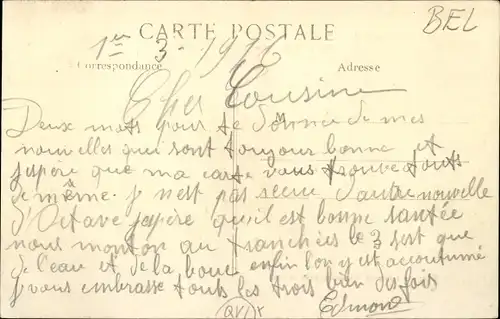 CARTE POSTALE
BEL
1er 3 - 1916
Correspondance
Adresse
Cher Cousine
Deux mots pour te donnée de mes
nouvelles qui sont toujour bonne et
j'spère que ma carte vous trouve touts
de même. J n'est pas secue d'autre nouvelle
d'Octave j'spère qu'il est bonne santée
nous monton au tranchées le 3 s'est que
de l'eau et de la boue enfin lon y est accoutumé
J vous embrasse touts les trois bien des fois
Edmond